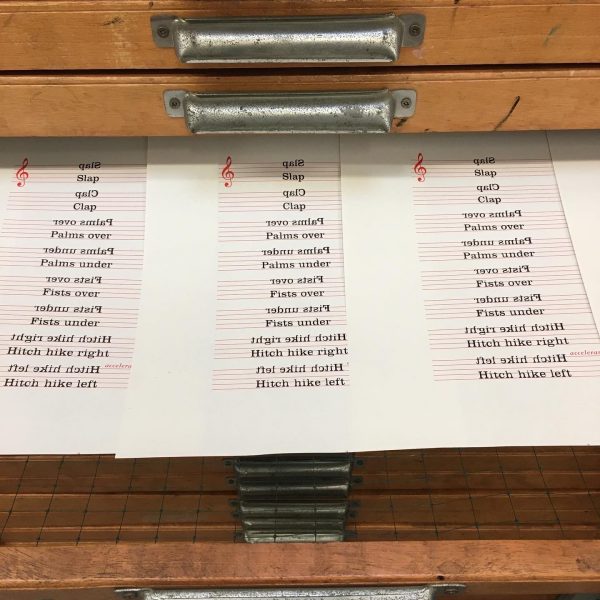 Slap
Slap
Clap
Clap
Palms over
Palms over
Palms under
Palms under
Fists over
Fists over
Fists under
Fists under
Hitch hike right
Hitch hike right
Hitch hike left accelera
Hitch hike left
Slap
Slap
Clap
Clap
Palms over
Palms over
Palms under
Palms under
Fists over
Fists over
Fists under
Fists under
Hitch hike right
Hitch hike right
Hitch hike left
Hitch hike left
Slap
Slap
Clap
Clap
Palms over
Palms over
Palms under
Palms under
Fists over
Fists over
Fists under
Fists under
Hitch hike right
Hitch hike right
Hitch hike left accelera
Hitch hike left